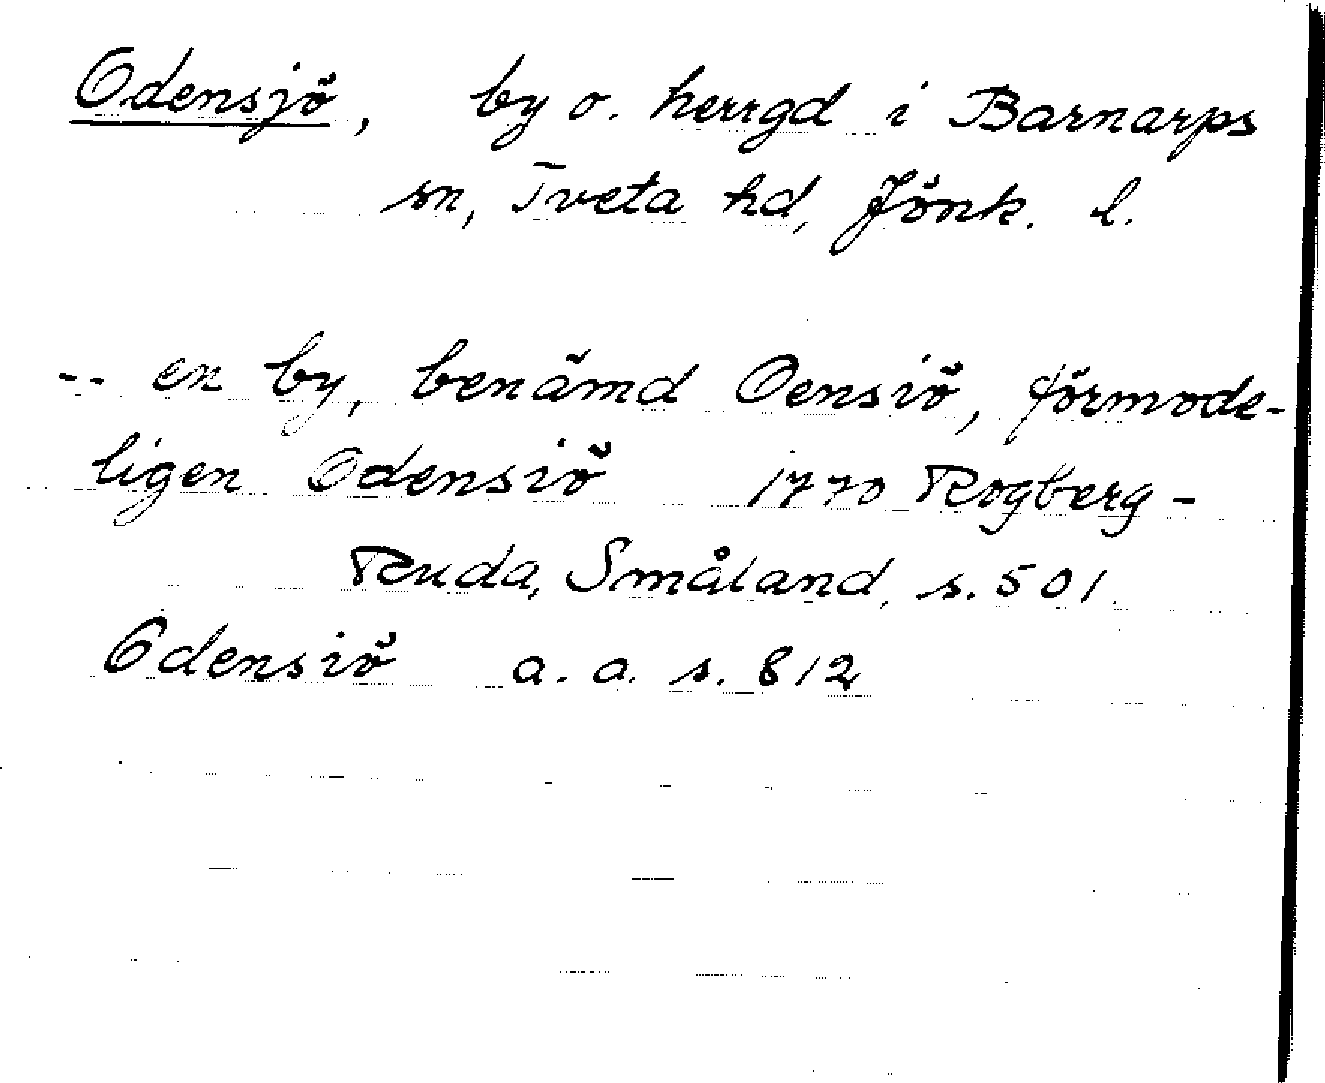 Odensjö, by o. herrgd i Barnarps
sn, Tveta hd, Jönk. l.
-- en by, benämd Oensiö, förmode-
ligen Odensiö 1770 Rogberg-
Ruda, Småland, s. 501.
Odensiö a. a. s. 812